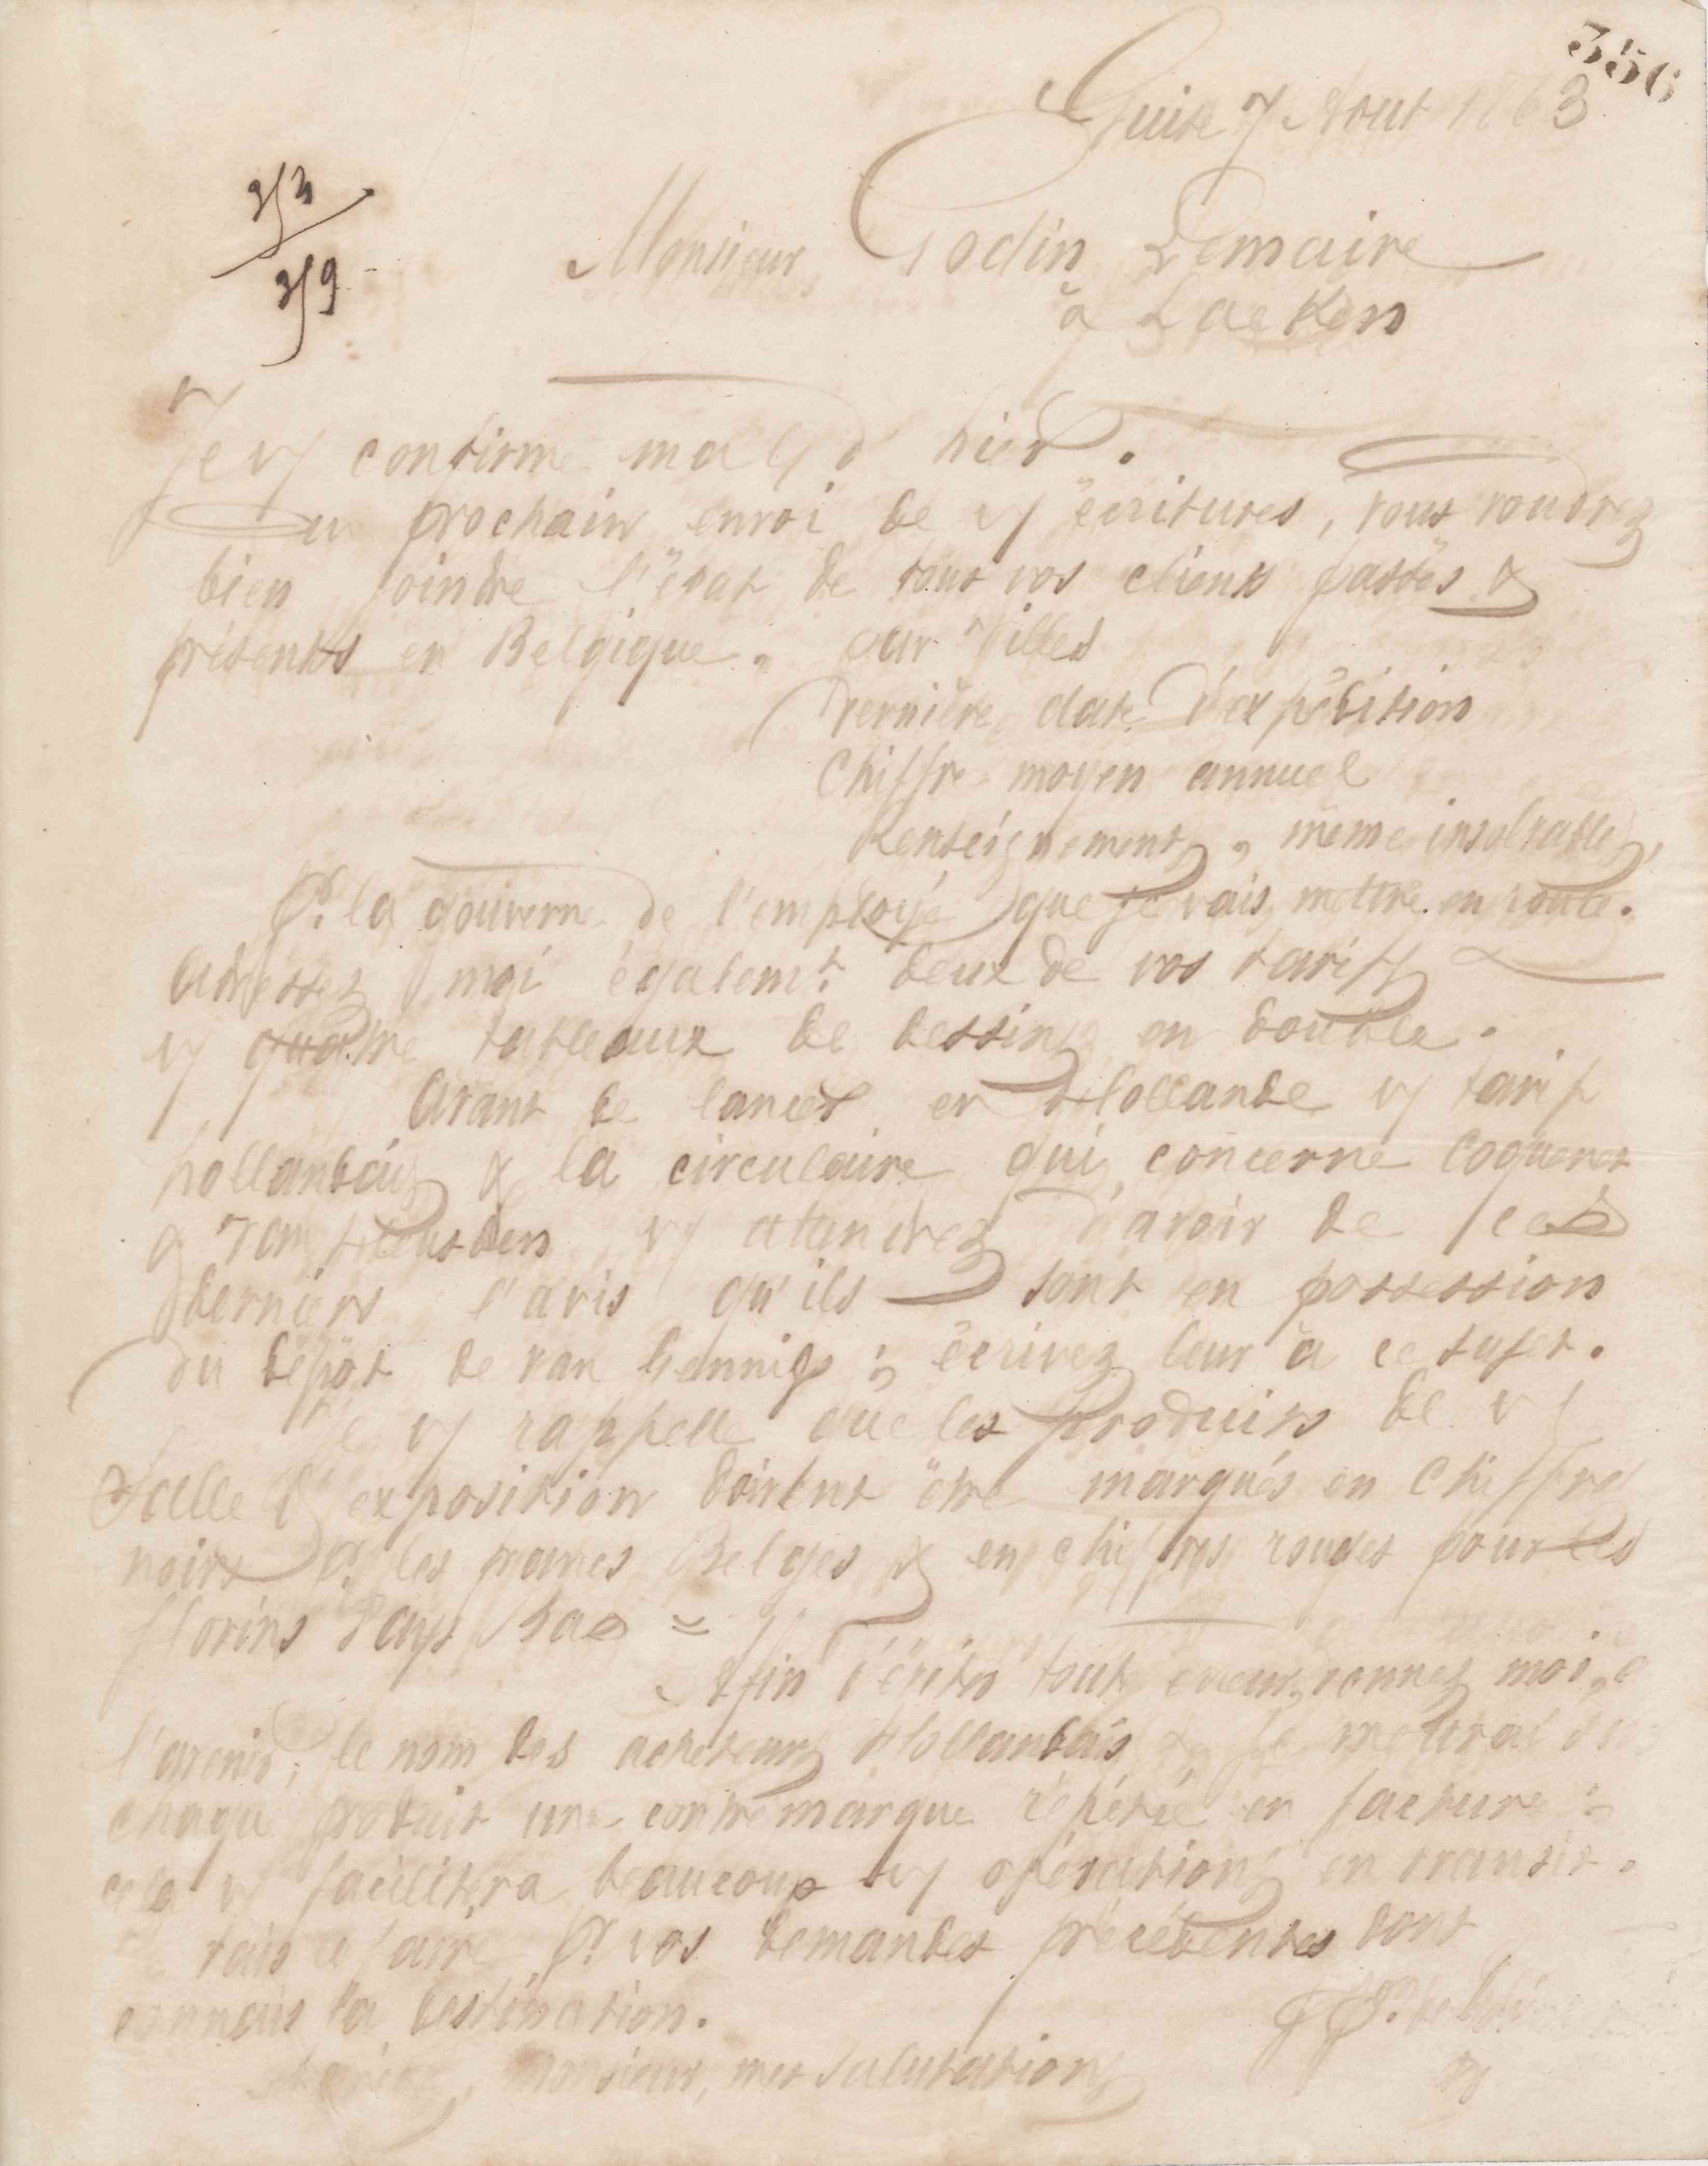 356
Guise 7 Août 1863
353
359
Monsieur Godin Lemaire
à Laeken
Je vs confirme ma d'hier.
Au prochain envoi de vs écritures, vous voudrez
bien joindre l'état de tous vos clients passés &
présents en Belgique. par villes
Dernière date d'expédition
Chiffre moyen annuel
Renseignements, même insolvables,
Pr. la gouverne de l'employé que je vais mettre en route.
Adressez moi égalemt. deux de vos tarifs
vs quatre tableaux de dessins en double.
Avant de lancer en Hollande vs tarif
hollandais & la circulaire qui concerne Coquenet
& vs attendrez d'avoir de ces
derniers l'avis qu'ils sont en possession
du dépôt de van Gennip; écrivez leur à ce sujet.
Je vs rappelle que les produits de vs
Salle d'exposition doivent être marqués en chiffres
noirs pr. les francs Belges & en chiffres rouges pour les
florins Pays Bas =
Afin d'éviter toute erreur, donnez moi, à
l'avenir, le nom des acheteurs Hollandais & je mettrai sur
chaque produit une contremarque répétée en facture:
cela vs facilitera beaucoup vs opérations en transit.
vais le faire pr. vos demandes précédentes dont
connais la destination.
Monsieur, mes salutations